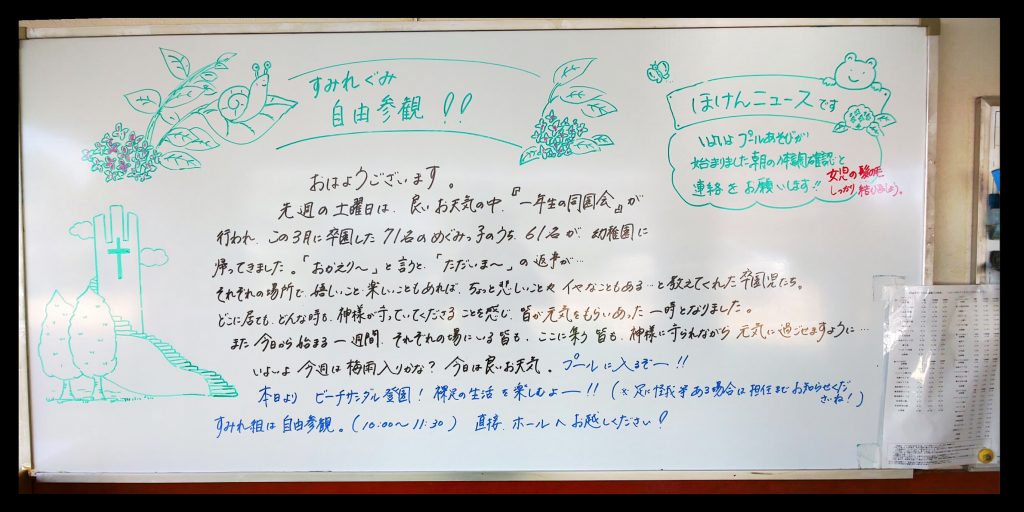 すみれぐみ
自由参観!!
ほけんニュースです
いよいよ プールあそびが
始まりました。朝の体調確認と
連絡を お願いします!!
女児の髪の毛
しっかり結びましょう。
おはようございます。
先週の土曜日は、良いお天気の中、『一年生の同園会』が
行われ、この3月に卒園した 71名のめぐみっ子のうち、61名が、幼稚園に
帰ってきました。「おかえり〜」と言うと、「ただいま〜」の返事が…
それぞれの場所で、嬉しいこと、楽しいこともあれば、ちょっと悲しいことや イヤなこともある…と教えてくれた卒園児たち。
どこに居ても、どんな時も、神様が守っていてくださることを感じ、皆が元気をもらいあった一時となりました。
また 今日から始まる一週間、それぞれの場にいる皆も、ここに集う皆も、神様に守られながら 元気に過ごせますように…
いよいよ 今週は梅雨入りかな? 今日は良いお天気。プールに入るぞー!!
本日より ビーチサンダル登園! 裸足の生活を楽しむよー!! (※足に怪我等ある場合は担任までお知らせくだ
さいね!)
すみれ組は自由参観。(10:00〜11:30) 直接、ホールへお越しください!